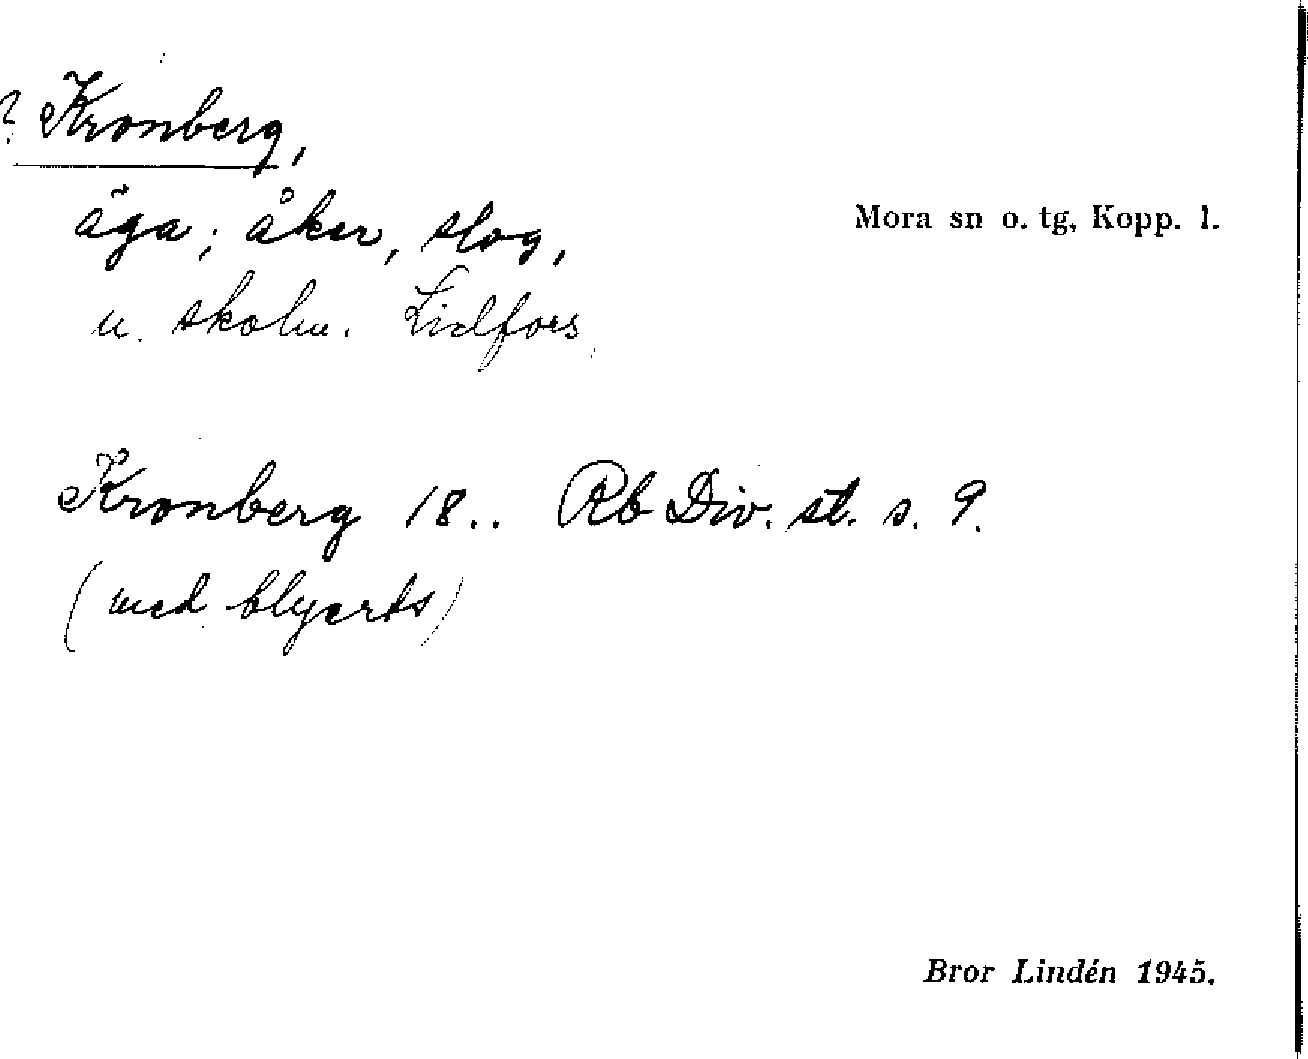 ? Kronberg,
äga; åker, slog,
Mora sn o. tg, Kopp. l.
u. skolm. Lidfors
Kronberg 18.. Rb Div. st. s. 9.
(med blyerts)
Bror Lindén 1945.